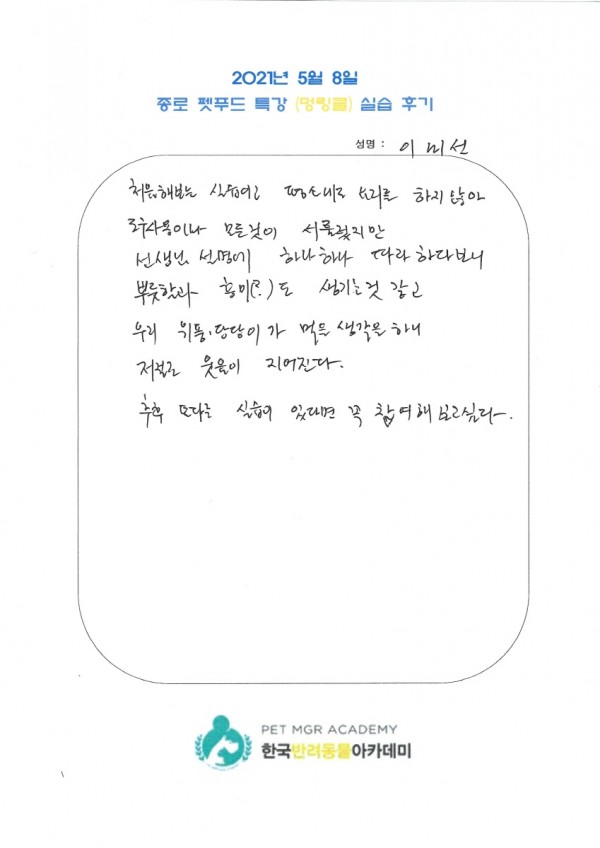 2021년 5월 8일
종로 펫푸드 특강 (멍링클) 실습 후기
성명 : 이미선
처음해보는 실습이고 평소에도 요리를 하지 않아
도구사용이나 모든것이 서툴렀지만
선생님 설명에 하나하나 따라 하다보니
뿌듯함과 흥미(?)도 생기는것 같고
우리 위풍,당당이가 먹을 생각을 하니
저절로 웃음이 지어진다.
추후 또다른 실습이 있다면 꼭 참여해 보고싶다.
PET MGR ACADEMY
한국반려동물아카데미